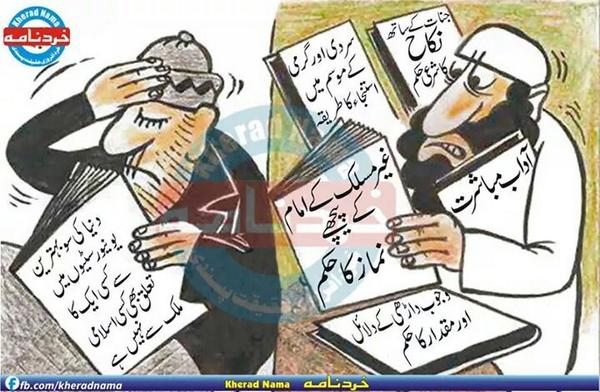 Kherad Nama
خرد نامہ
جنات کے ساتھ
نکاح
کا شرعی حکم
سردی اور گرمی
کے موسم میں
استنجاء کا طریقہ
غیر مسلک کے امام
کے پیچھے
نماز کا حکم
آداب مباشرت
وجوب داڑھی کے دلائل
اور مقدار کا حکم
دنیا کی سو بہترین
یونیورسٹیوں میں
سے کسی ایک کا
تعلق بھی کسی اسلامی
ملک سے نہیں ہے
Kherad Nama
fb.com/kheradnama
Kherad Nama خرد نامہ